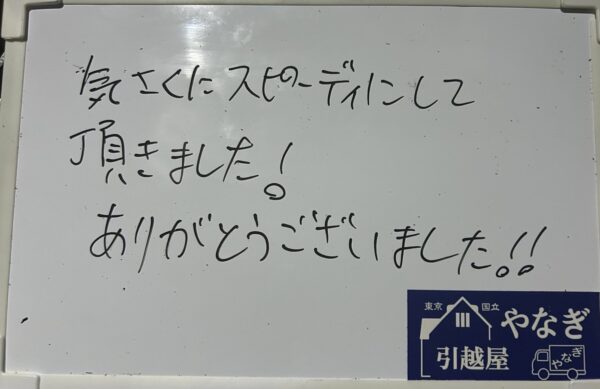 気さくにスピーディにして
頂きました!
ありがとうございました!!
東京 国立
やなぎ
引越屋
やなぎ